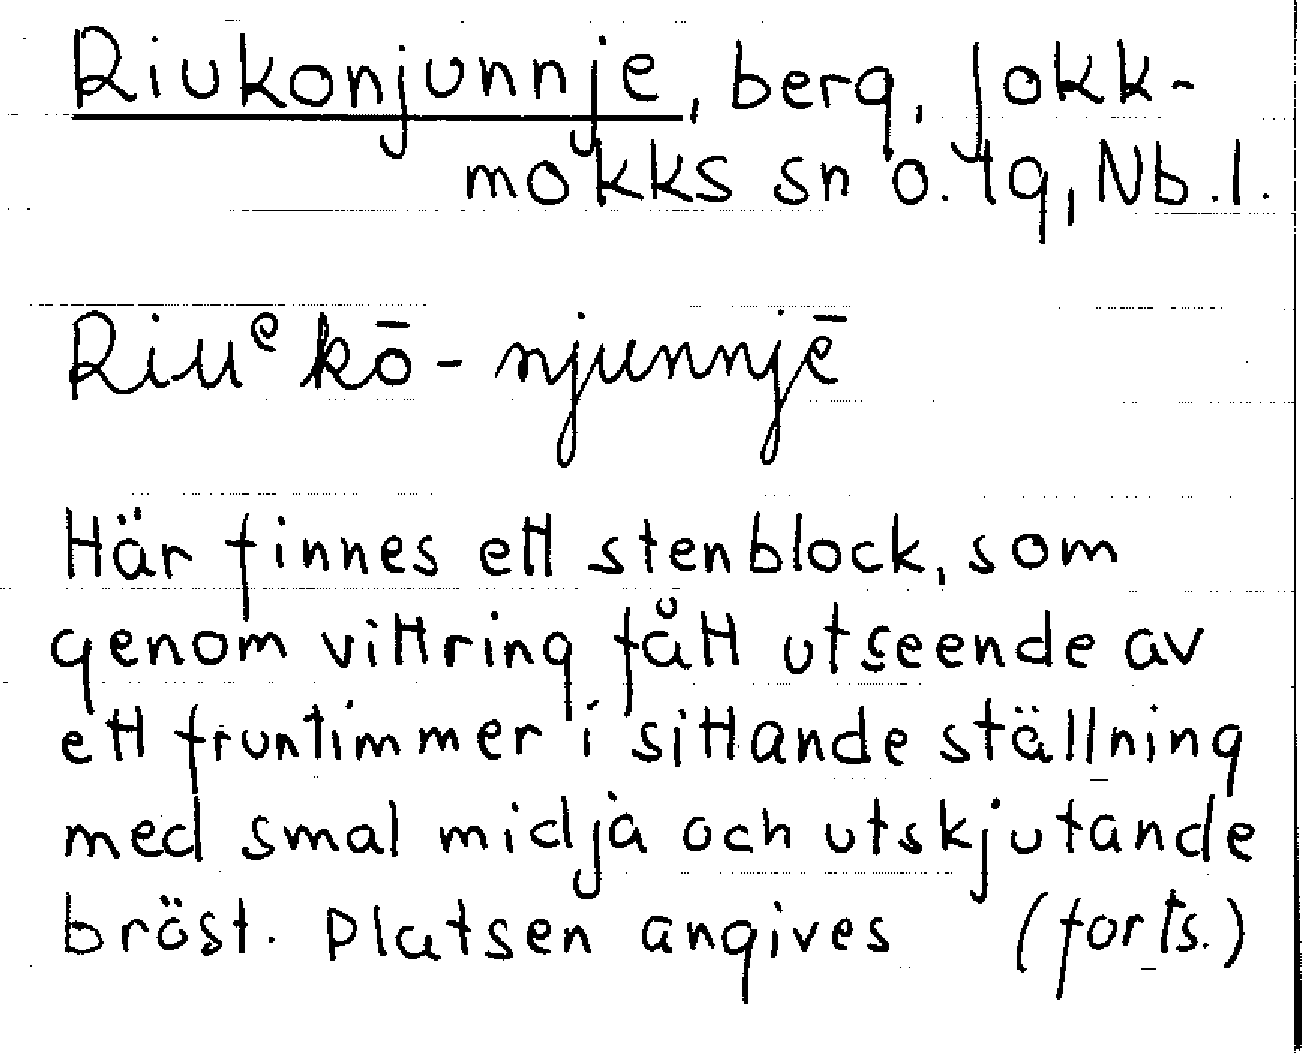 Riukonjunnje, berg, Jokk-
mokks sn o. tg, Nb. l.
Riuᵉkō-njunnjē
Här finnes ett stenblock, som
genom vittring fått utseende av
ett fruntimmer i sittande ställning
med smal midja och utskjutande
bröst. Platsen angives (forts.)